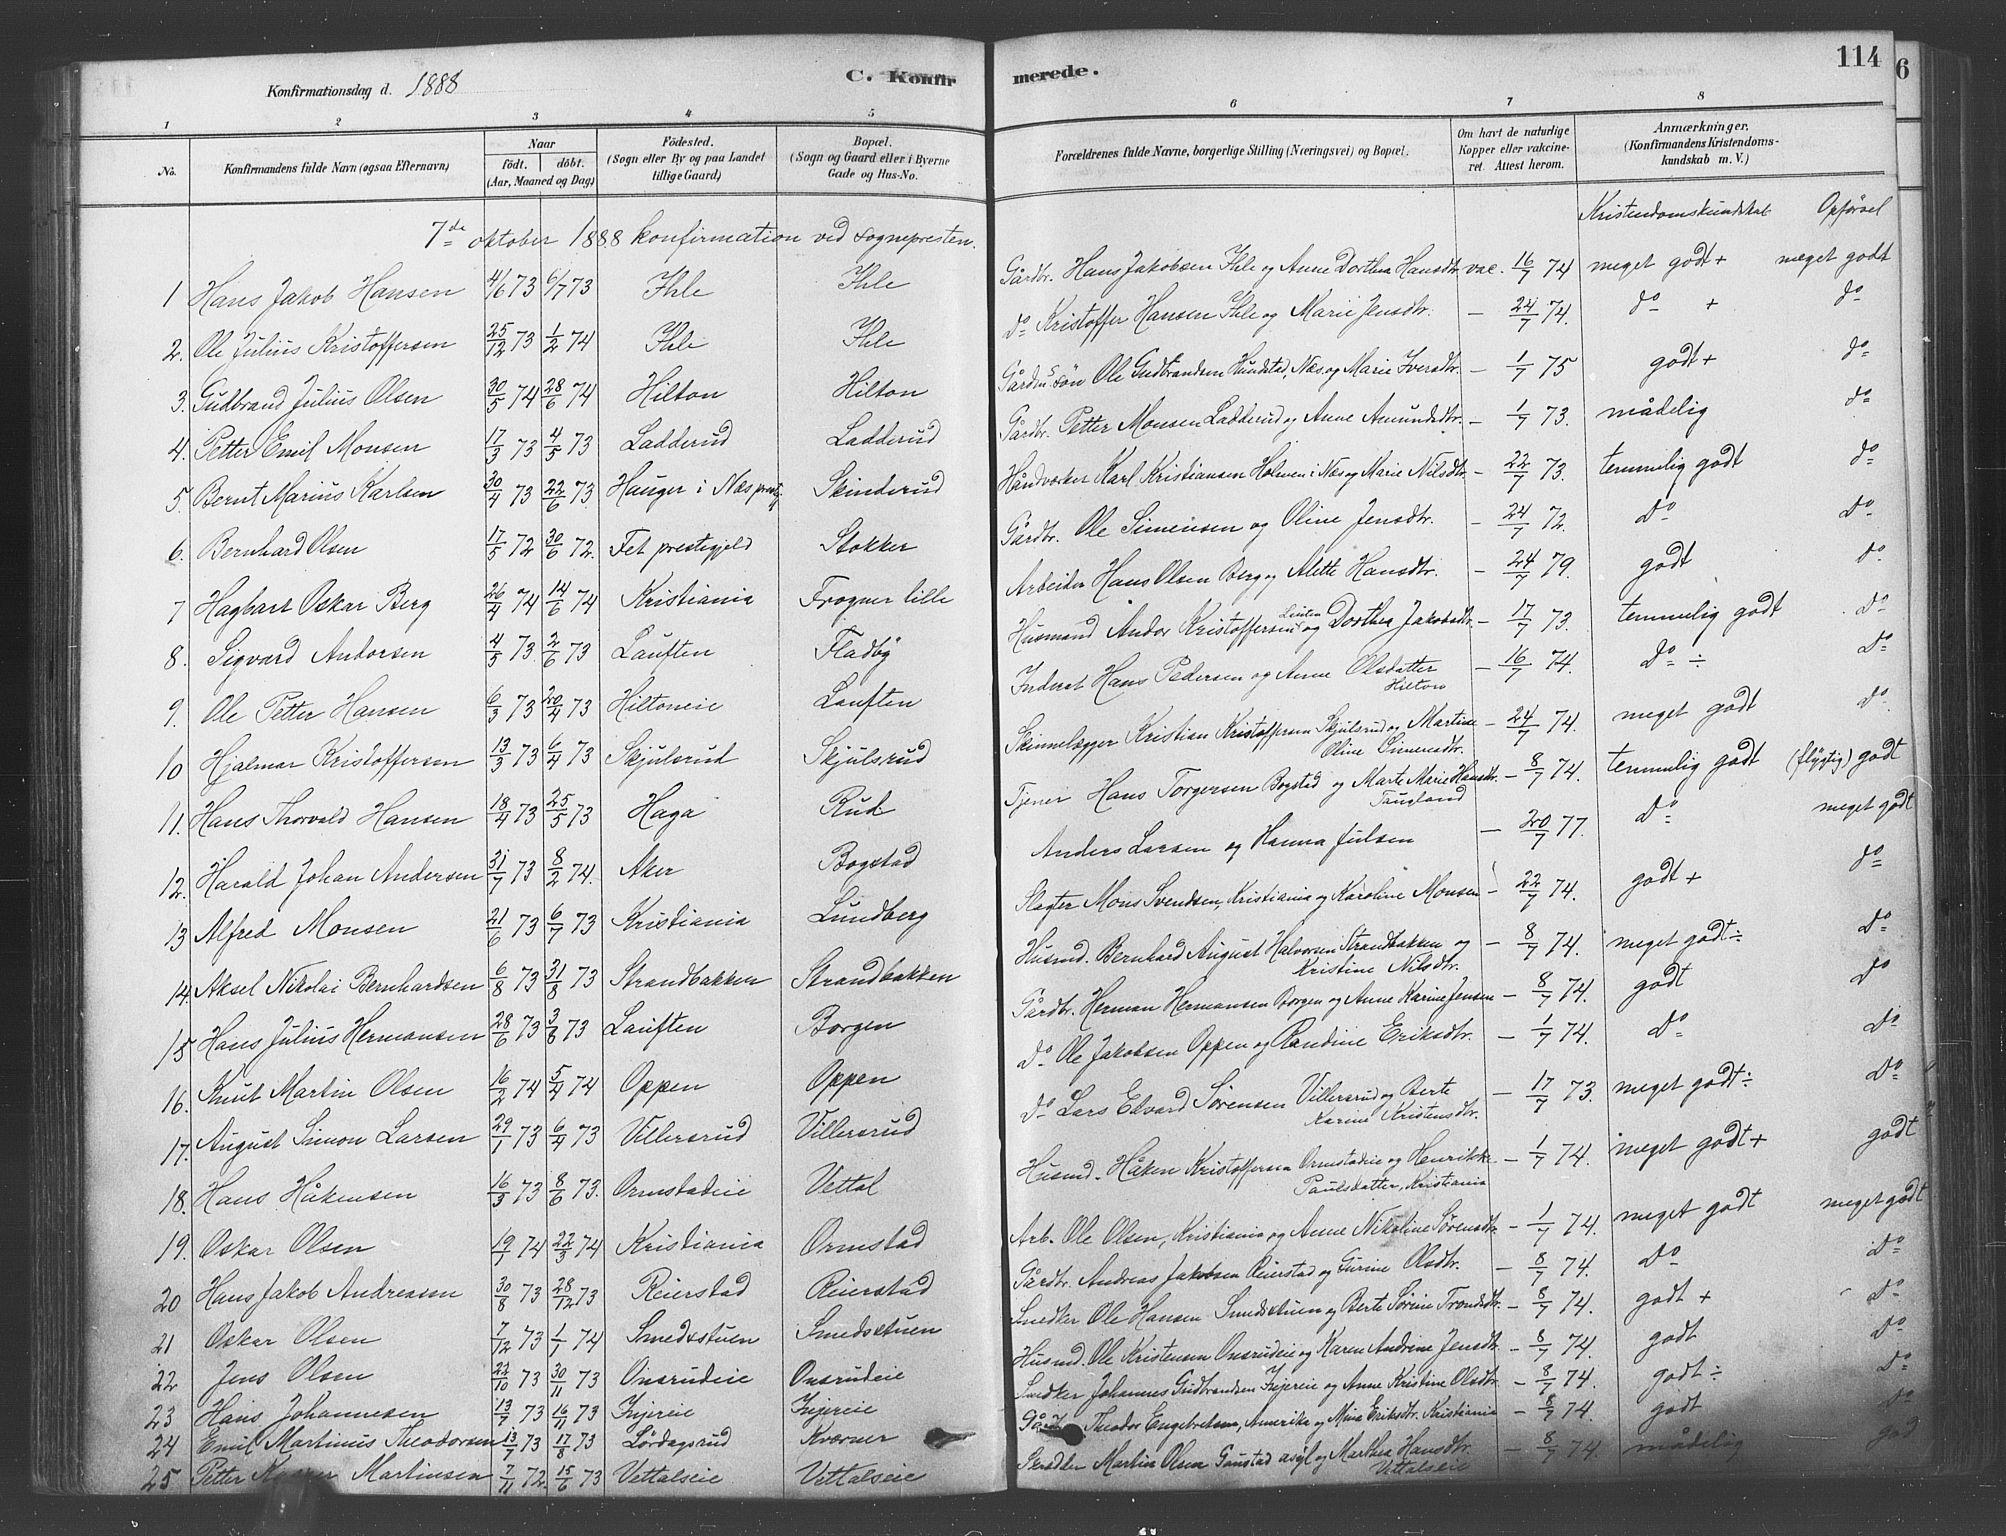 114
6
C. Konfirmerede.
Konfirmationsdag d. 1888
1 2 3 4 5 6 7 8
No.
Konfirmandens fulde Navn (ogsaa Efternavn)
Naar
födt. döbt.
(Aar, Maaned og Dag)
Födested.
(Sogn eller By og paa Landet
tillige Gaard)
Bopæl.
(Sogn og Gaard eller i Byerne
Gade og Hus-No.
Forældrenes fulde Navne, borgerlige Stilling (Næringsvei) og Bopæl.
Om havt de naturlige
Kopper eller vakcine-
ret. Attest herom.
Anmærkninger.
(Konfirmandens Kristendoms-
kundskab m. V.)
Kristendomskundskab Opførsel
7de oktober 1888 konfirmation ved sognepresten.
1 Hans Jakob Hansen 4/6 73 6/7 73 Ihle Ihle Gårdbr. Hans Jakobsen Ihle og Anne Dorthea Hansdtr. vac. 16/7 74 meget godt + meget godt
2. Ole Julius Kristoffersen 25/12 73 1/2 74 Ihle Ihle do Kristoffer Hansen Ihle og Marie Jensdtr. – 24/7 74. do + do
3. Gudbrand Julius Olsen 30/5 74 28/6 74 Hilton Hilton Gårdms søn Ole Gudbrandsen Hundstad, Næs og Marie Iversdtr. – 1/7 75 godt + do
4. Petter Emil Monsen 17/3 73 4/5 73 Ladderud Ladderud Gårdbr. Petter Monsen Ladderud og Anne Amundsdtr. – 1/7 73. mådelig do
5. Bernt Marius Karlsen 30/4 73 22/6 73 Hauger i Næs prestgj Skinderud Håndværker Karl Kristiansen Holmen i Næs og Marie Nilsdtr. – 22/7 73. temmelig godt do
6. Bernhard Olsen 17/5 72 30/6 72. Fet prestegjeld Stokker Gårdbr. Ole Simensen og Oline Jensdtr. – 24/7 72. do do
7 Hagbart Oskar Berg 26/4 74 14/6 74 Kristiania Frogner lille Arbeider Hans Olsen Berg og Alette Hansdtr. – 24/7 79. godt do
8. Sigvard Andorsen 4/5 73. 2/6 73 Lauften Fladby Husmand Andor Kristoffersen og Dorthea Jakobsdtr. – 17/7 73. temmelig godt do
9. Ole Petter Hansen 6/3 73 20/4 73 Hiltoneie Lauften Inderst Hans Pedersen og Anne Olsdatter – 16/7 74. do ÷ do
Hilton
10 Hjalmar Kristoffersen 13/3 73 6/4 73 Skjulsrud Skjulsrud Skinnelægger Kristian Kristoffersen Skjulsrud og Martine – 24/7 74. meget godt do
Oline Simensdtr.
11. Hans Thorvald Hansen 18/4 73 25/5 73 Haga Rud Tjener Hans Torgersen Bogstad og Marte Marie Hansdtr. – 8/7 74. temmelig godt (flygtig) godt
Taugland
12. Harald Johan Andersen 31/7 73 8/2 74. Aker Bogstad Anders Larsen og Hanna Julsen – 20/7 77. do meget godt
13 Alfred Monsen 21/6 73 6/7 73 Kristiania Lundberg Slagter Mons Svendsen, Kristiania og Karoline Monsen – 22/7 74. godt + do
14. Aksel Nikolai Bernhardsen 6/8 73 31/8 73 Strandbakken Strandbakken Husmd. Bernhard August Halvorsen Strandbakken og – 8/7 74. meget godt ÷ do
Kristine Nilsdtr.
15 Hans Julius Hermansen 28/6 73 3/8 73 Lauften Borgen Gårdbr. Herman Hermansen Borgen og Anne Karine Jensen – 8/7 74. godt do
16. Knut Martin Olsen 16/2 74 5/4 74 Oppen Oppen do Ole Jakobsen Oppen og Randine Eriksdtr. – 1/7 74. do do
17. August Simon Larsen 29/1 73 6/4 73 Villersrud Villersrud do Lars Edvard Sørensen Villersrud og Berte – 17/7 73. meget godt ÷ do
Karine Kristensdtr.
18. Hans Håkensen 16/3 73 8/6 73. Ormstadeie Vettal Husmd. Håken Kristoffersen Ormstadeie og Henrikke – 1/7 74. meget godt + godt
Paulsdatter, Kristiania
19. Oskar Olsen 19/1 74 22/3 74 Kristiania Ormstad Arb. Ole Olsen, Kristiania og Anne Nikoline Sørensdtr. – 1/7 74. meget godt meget godt
20 Hans Jakob Andreasen 30/8 73 28/12 73 Reierstad Reierstad Gårdbr. Andreas Jakobsen Reierstad og Gurine Olsdtr. – 8/7 74. do do
21 Oskar Olsen 7/12 73 1/1 74 Smedsstuen Smedsstuen Snedker Ole Hansen Smedsstuen og Berte Sørine Trondsdtr. – 8/7 74. godt + do
22 Jens Olsen 22/10 73 30/11 73 Onsrudeie Onsrudeie Husmd. Ole Kristensen Onsrudeie og Karen Andrine Jensdtr. – 8/7 74. godt do
23 Hans Johannesen 13/9 73 16/11 73 Injereie Injereie Snedker Johannes Gudbrandsen Injereie og Anne Kristine Olsdtr. – 8/7 74. godt ÷ do
24 Emil Martinus Theodorsen 13/7 73 17/8 73 Lørdagsrud Kværner Theodor Engebretsen, Amerika og Mina Eriksdtr. Kristiania – 8/7 74. godt do
25 Petter Martinsen 7/11 72. 15/6 73 Vettalseie Vettalseie Skrædder Martin Olsen Gaustad asyl og Marthea Hansdtr. – 8/7 74. mådelig god
Vettalseie